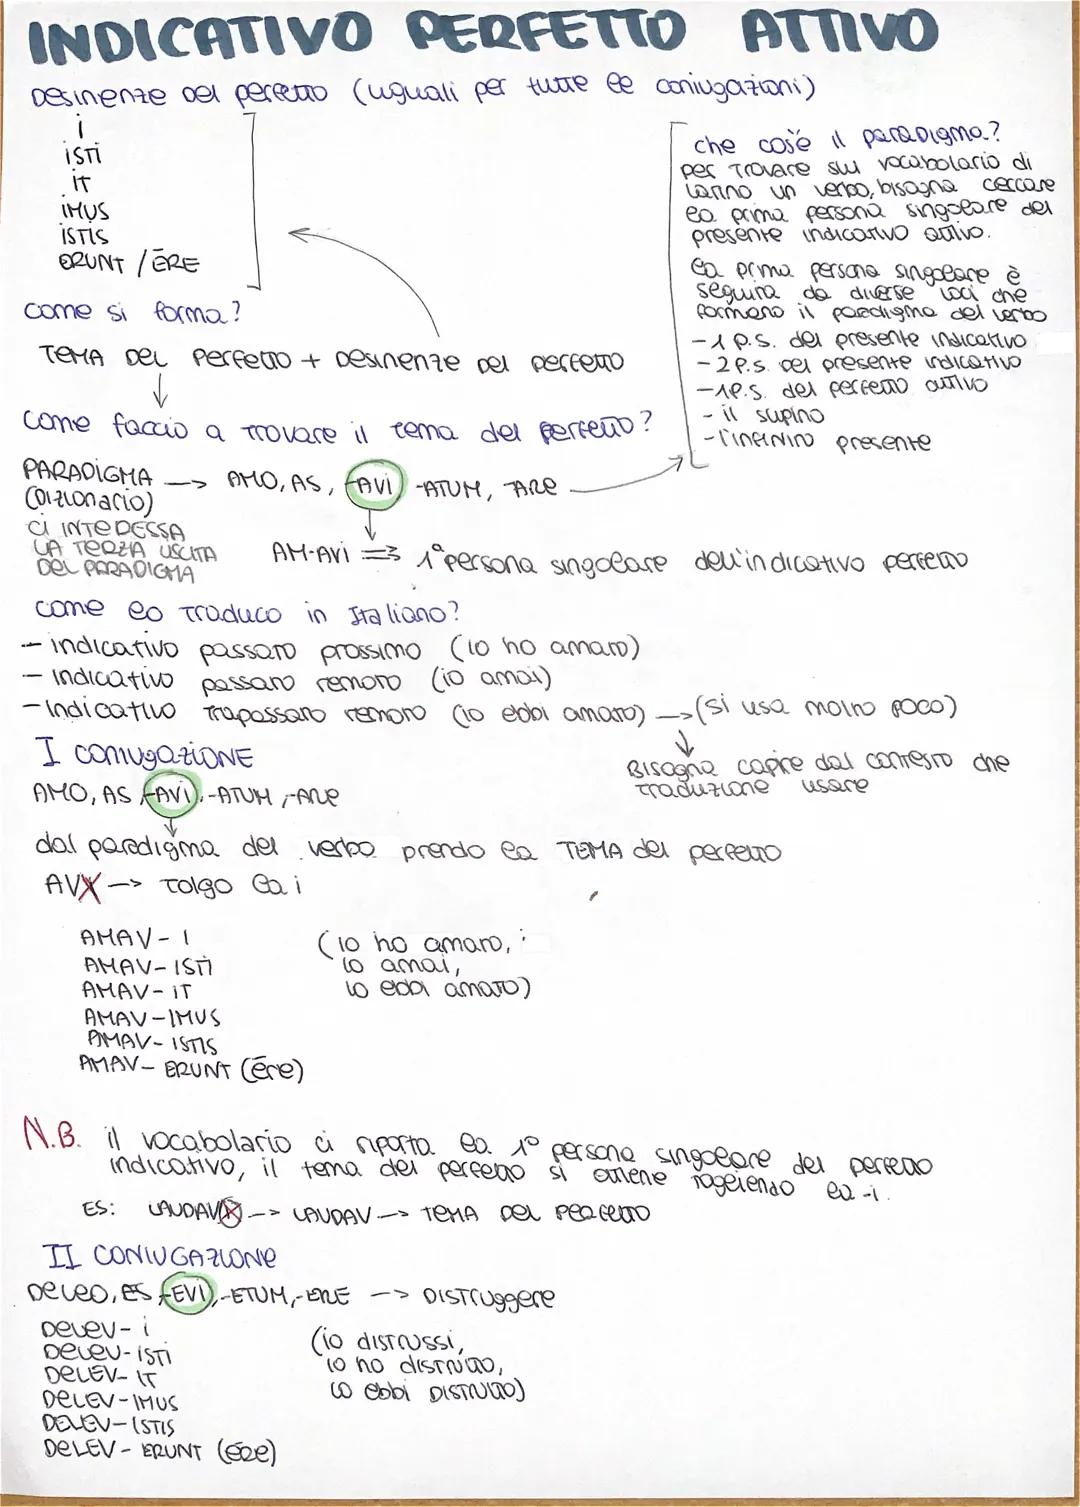 INDICATIVO PERFETTO ATTIVO
Desinenze del perfetto (uguali per tutte le coniugazioni)
i
isti
it
imus
istis
erunt / ēre
come si forma?
Tema del perfetto + desinenze del perfetto
come faccio a trovare il tema del perfetto?
PARADIGMA --> AMO, AS, -AVI -ATUM, -ARE
(dizionario)
ci interessa
la terza uscita
del paradigma
AM-AVI => 1ª persona singolare dell'indicativo perfetto
che cos'è il paradigma?
per trovare sul vocabolario di
latino un verbo, bisogna cercare
la prima persona singolare del
presente indicativo attivo.
la prima persona singolare è
seguita da diverse voci che
formano il paradigma del verbo
- 1 p.s. del presente indicativo
- 2 p.s. del presente indicativo
- 1 p.s. del perfetto attivo
- il supino
- l'infinito presente
come lo traduco in italiano?
- indicativo passato prossimo (io ho amato)
- indicativo passato remoto (io amai)
- indicativo trapassato remoto (io ebbi amato) --> (si usa molto poco)
Bisogna capire dal contesto che
traduzione usare
I coniugazione
AMO, AS -AVI, -ATUM, -ARE
dal paradigma del verbo prendo la TEMA del perfetto
AVI --> tolgo la i
AMAV- I
AMAV- ISTI
AMAV- IT
AMAV- IMUS
AMAV- ISTIS
AMAV- ERUNT (ēre)
(io ho amato,
io amai,
io ebbi amato)
N.B. il vocabolario ci riporta la 1ª persona singolare del perfetto
indicativo, il tema del perfetto si ottiene togliendo la -i.
ES: LAUDAVI --> LAUDAV --> TEMA DEL PERFETTO
II CONIUGAZIONE
Deleo, ES -EVI, -ETUM, -ERE --> DISTRUGGERE
DELEV- i
DELEV- ISTI
DELEV- IT
DELEV- IMUS
DELEV- ISTIS
DELEV- ERUNT (ēre)
(io distrussi,
io ho distrutto,
io ebbi distrutto)